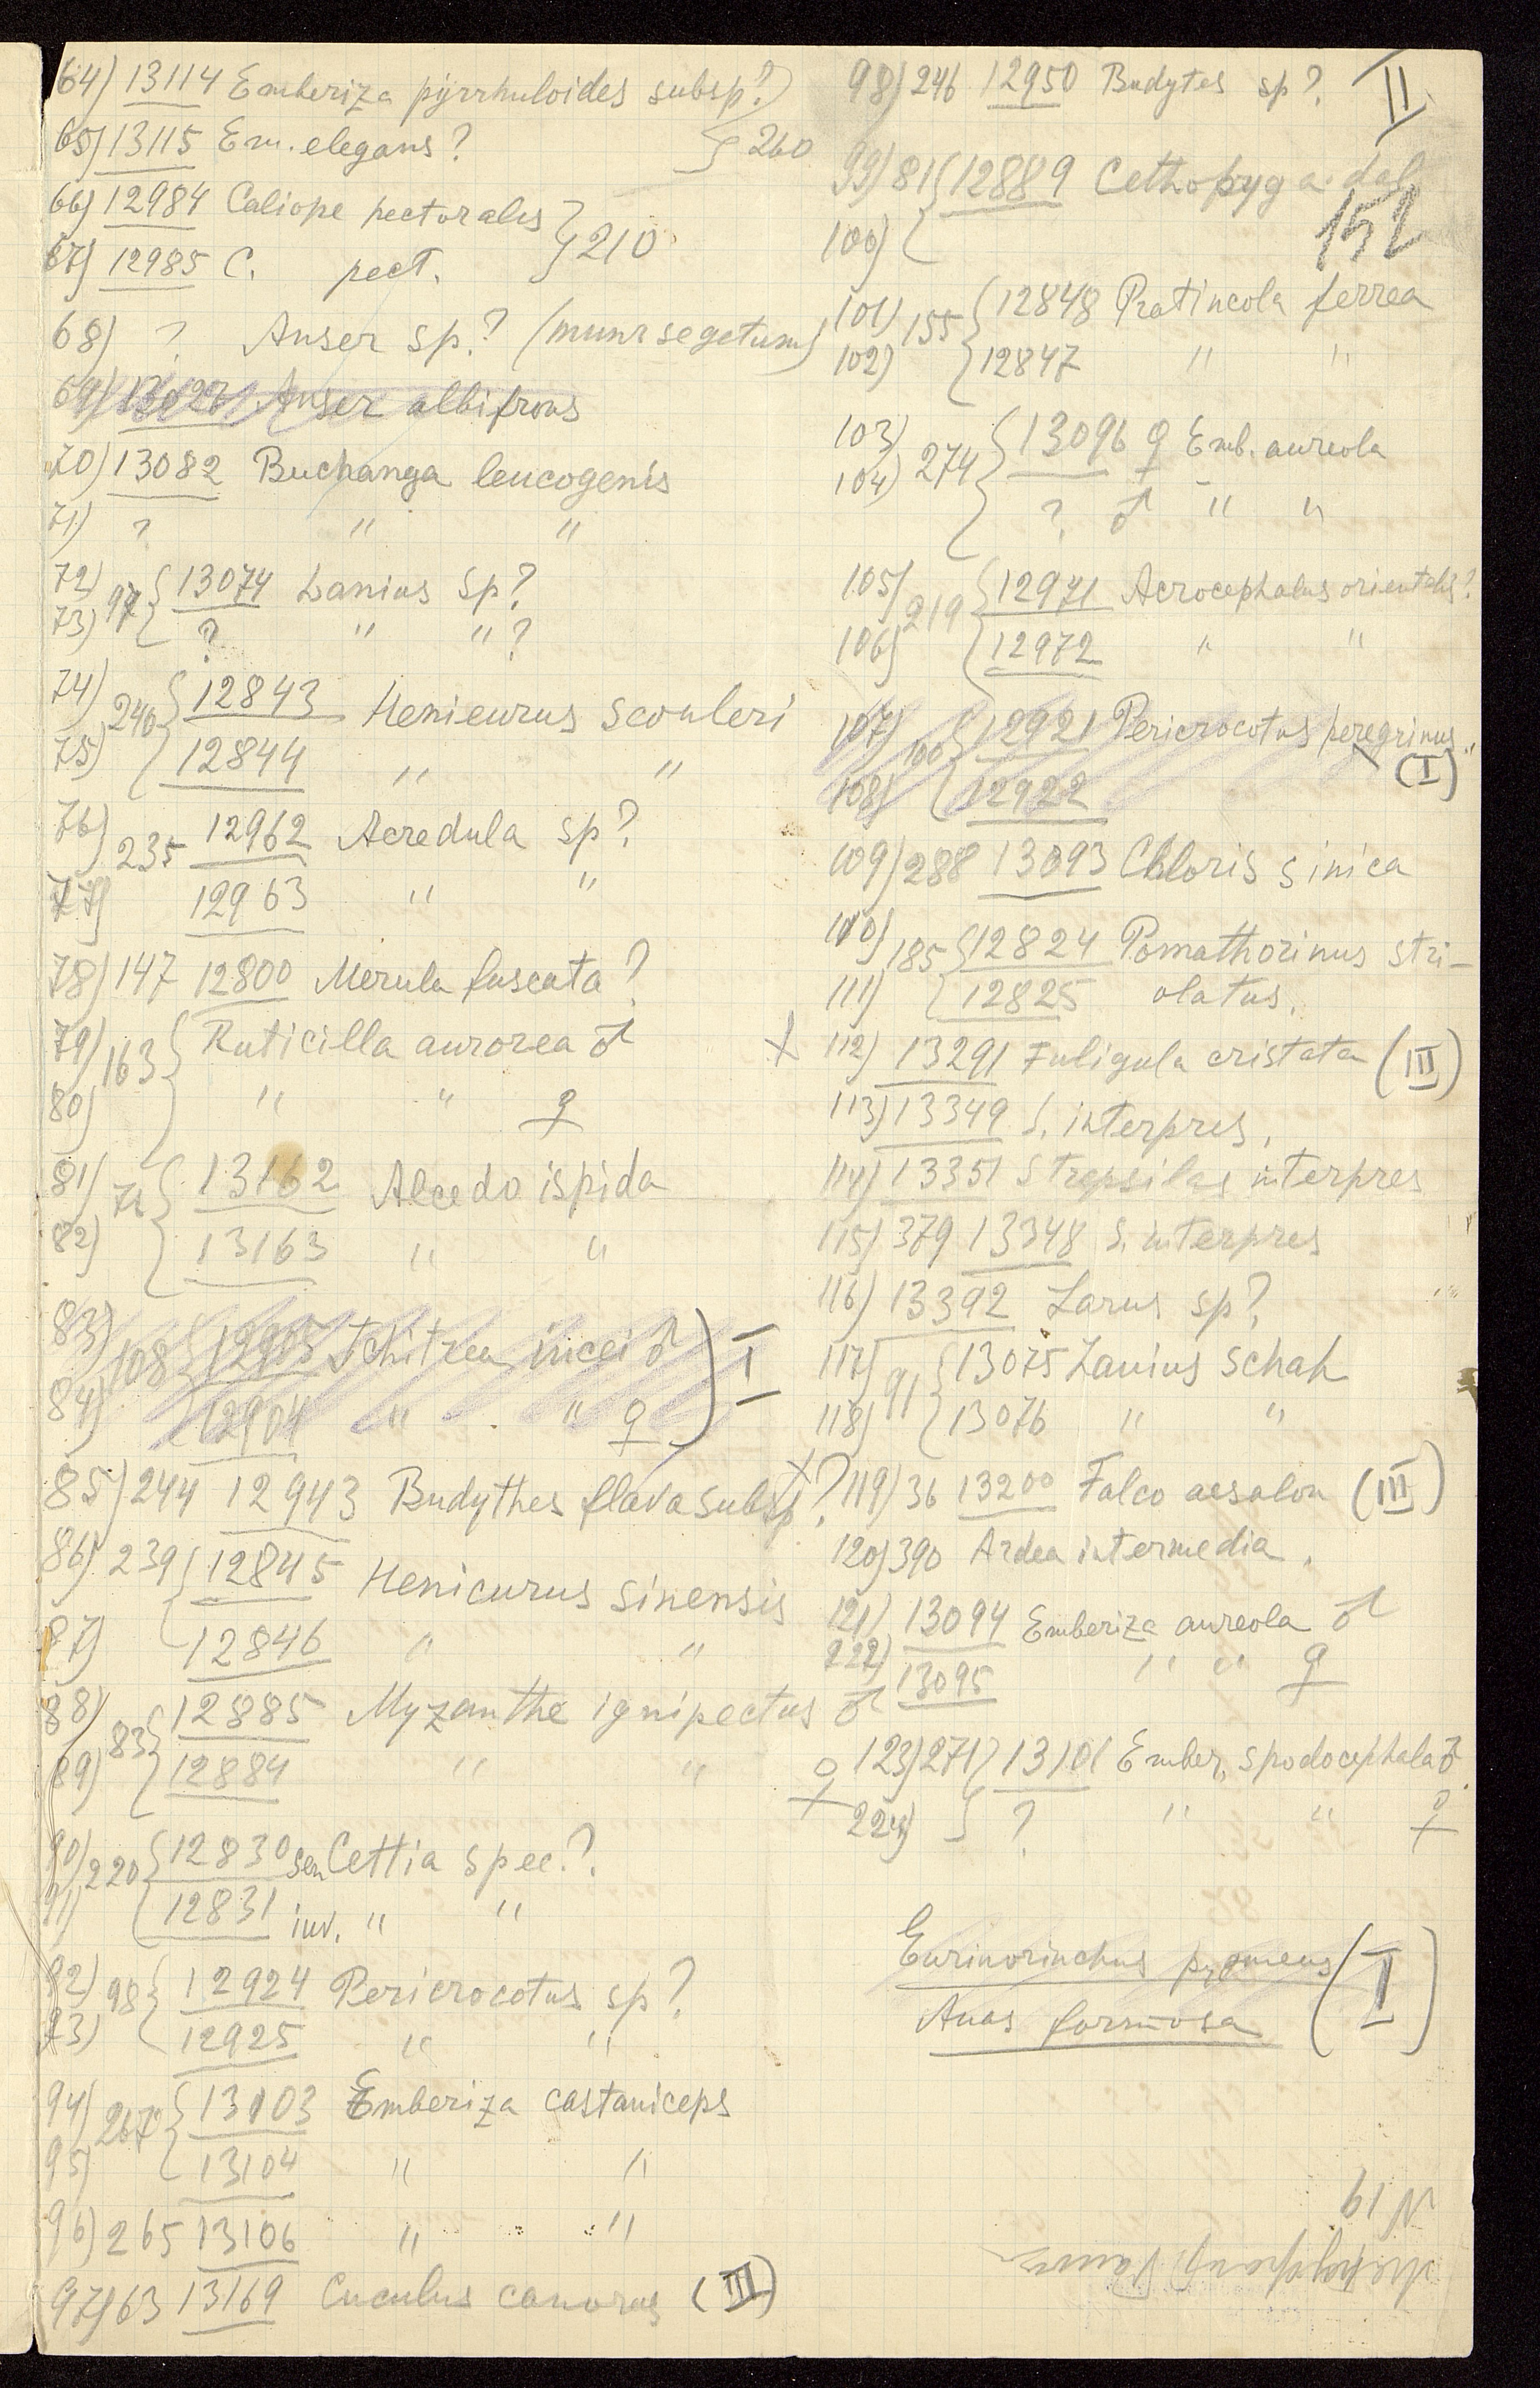 64) 13114 Emberiza pyrrhuloides subsp?
65) 13115 Em. elegans? } 260
66) 12984 Caliope pectoralis
67) 12985 C. pect. } 210
68) ? Anser sp.? (segetum)
69) Anser albifrons
70) 13082 Buchanga leucogenis
71) ? " "
72) 13074 Lanius sp?
73) ? " "?
74) 240 { 12843 Henicurus scouleri
75) 12844 " "
76) 235 12962 Acredula sp?
77) 12963 " "
78) 147 12800 Merula fuscata?
79) 163 { Ruticilla aurorea ♂
80) " " ♀
81) { 13162 Alcedo ispida
82) 13163 " "
83) 108 { 12905 Tchitrea incei ♂ ) I
84) 12904 " " ♀
85) 244 12943 Budythes flava subsp?
86) 239 { 12845 Henicurus sinensis
87) 12846 " "
88) 83 { 12885 Myzanthe ignipectus ♂
89) 12884 " " ♀
90) 220 { 12830 sen Cettia spec.?
91) 12831 iuv. " "
92) 98 { 12924 Pericrocotus sp?
93) 12925 " "
94) 267 { 13103 Emberiza castaniceps
95) 13104 " "
96) 265 13106 " "
97) 63 13169 Cuculus canorus (III)
II
98) 246 12950 Budytes sp?
99) 81 { 12889 Cethopyga dal
152
100)
101) 155 { 12848 Pratincola ferrea
102) 12847 " "
103) 274 { 13096 ♀ Emb. aureola
104) ? ♂ " "
105) 219 { 12971 Acrocephalus orientalis?
106) 12972 " "
107) 100 { 12921 Pericrocotus peregrinus
(I)
108) 12922
109) 288 13093 Chloris sinica
110) 185 { 12824 Pomathorinus stri-
111) 12825 olatus.
X 112) 13291 Fuligula cristata (III)
113) 13349 S. interpres.
114) 13351 Strepsilas interpres
115) 379 13348 S. interpres
116) 13392 Larus sp?
117) 91 { 13075 Lanius schah
118) 13076 " "
X 119) 36 13200 Falco aesalon (III)
120) 390 Ardea intermedia.
121) 13094 Emberiza aureola ♂
222) 13095 " " ♀
123) 271 } 13101 Ember. spodocephala ♂
224) ? " " ♀
Eurinorinchus pygmeus (I)
Anas formosa
N 19